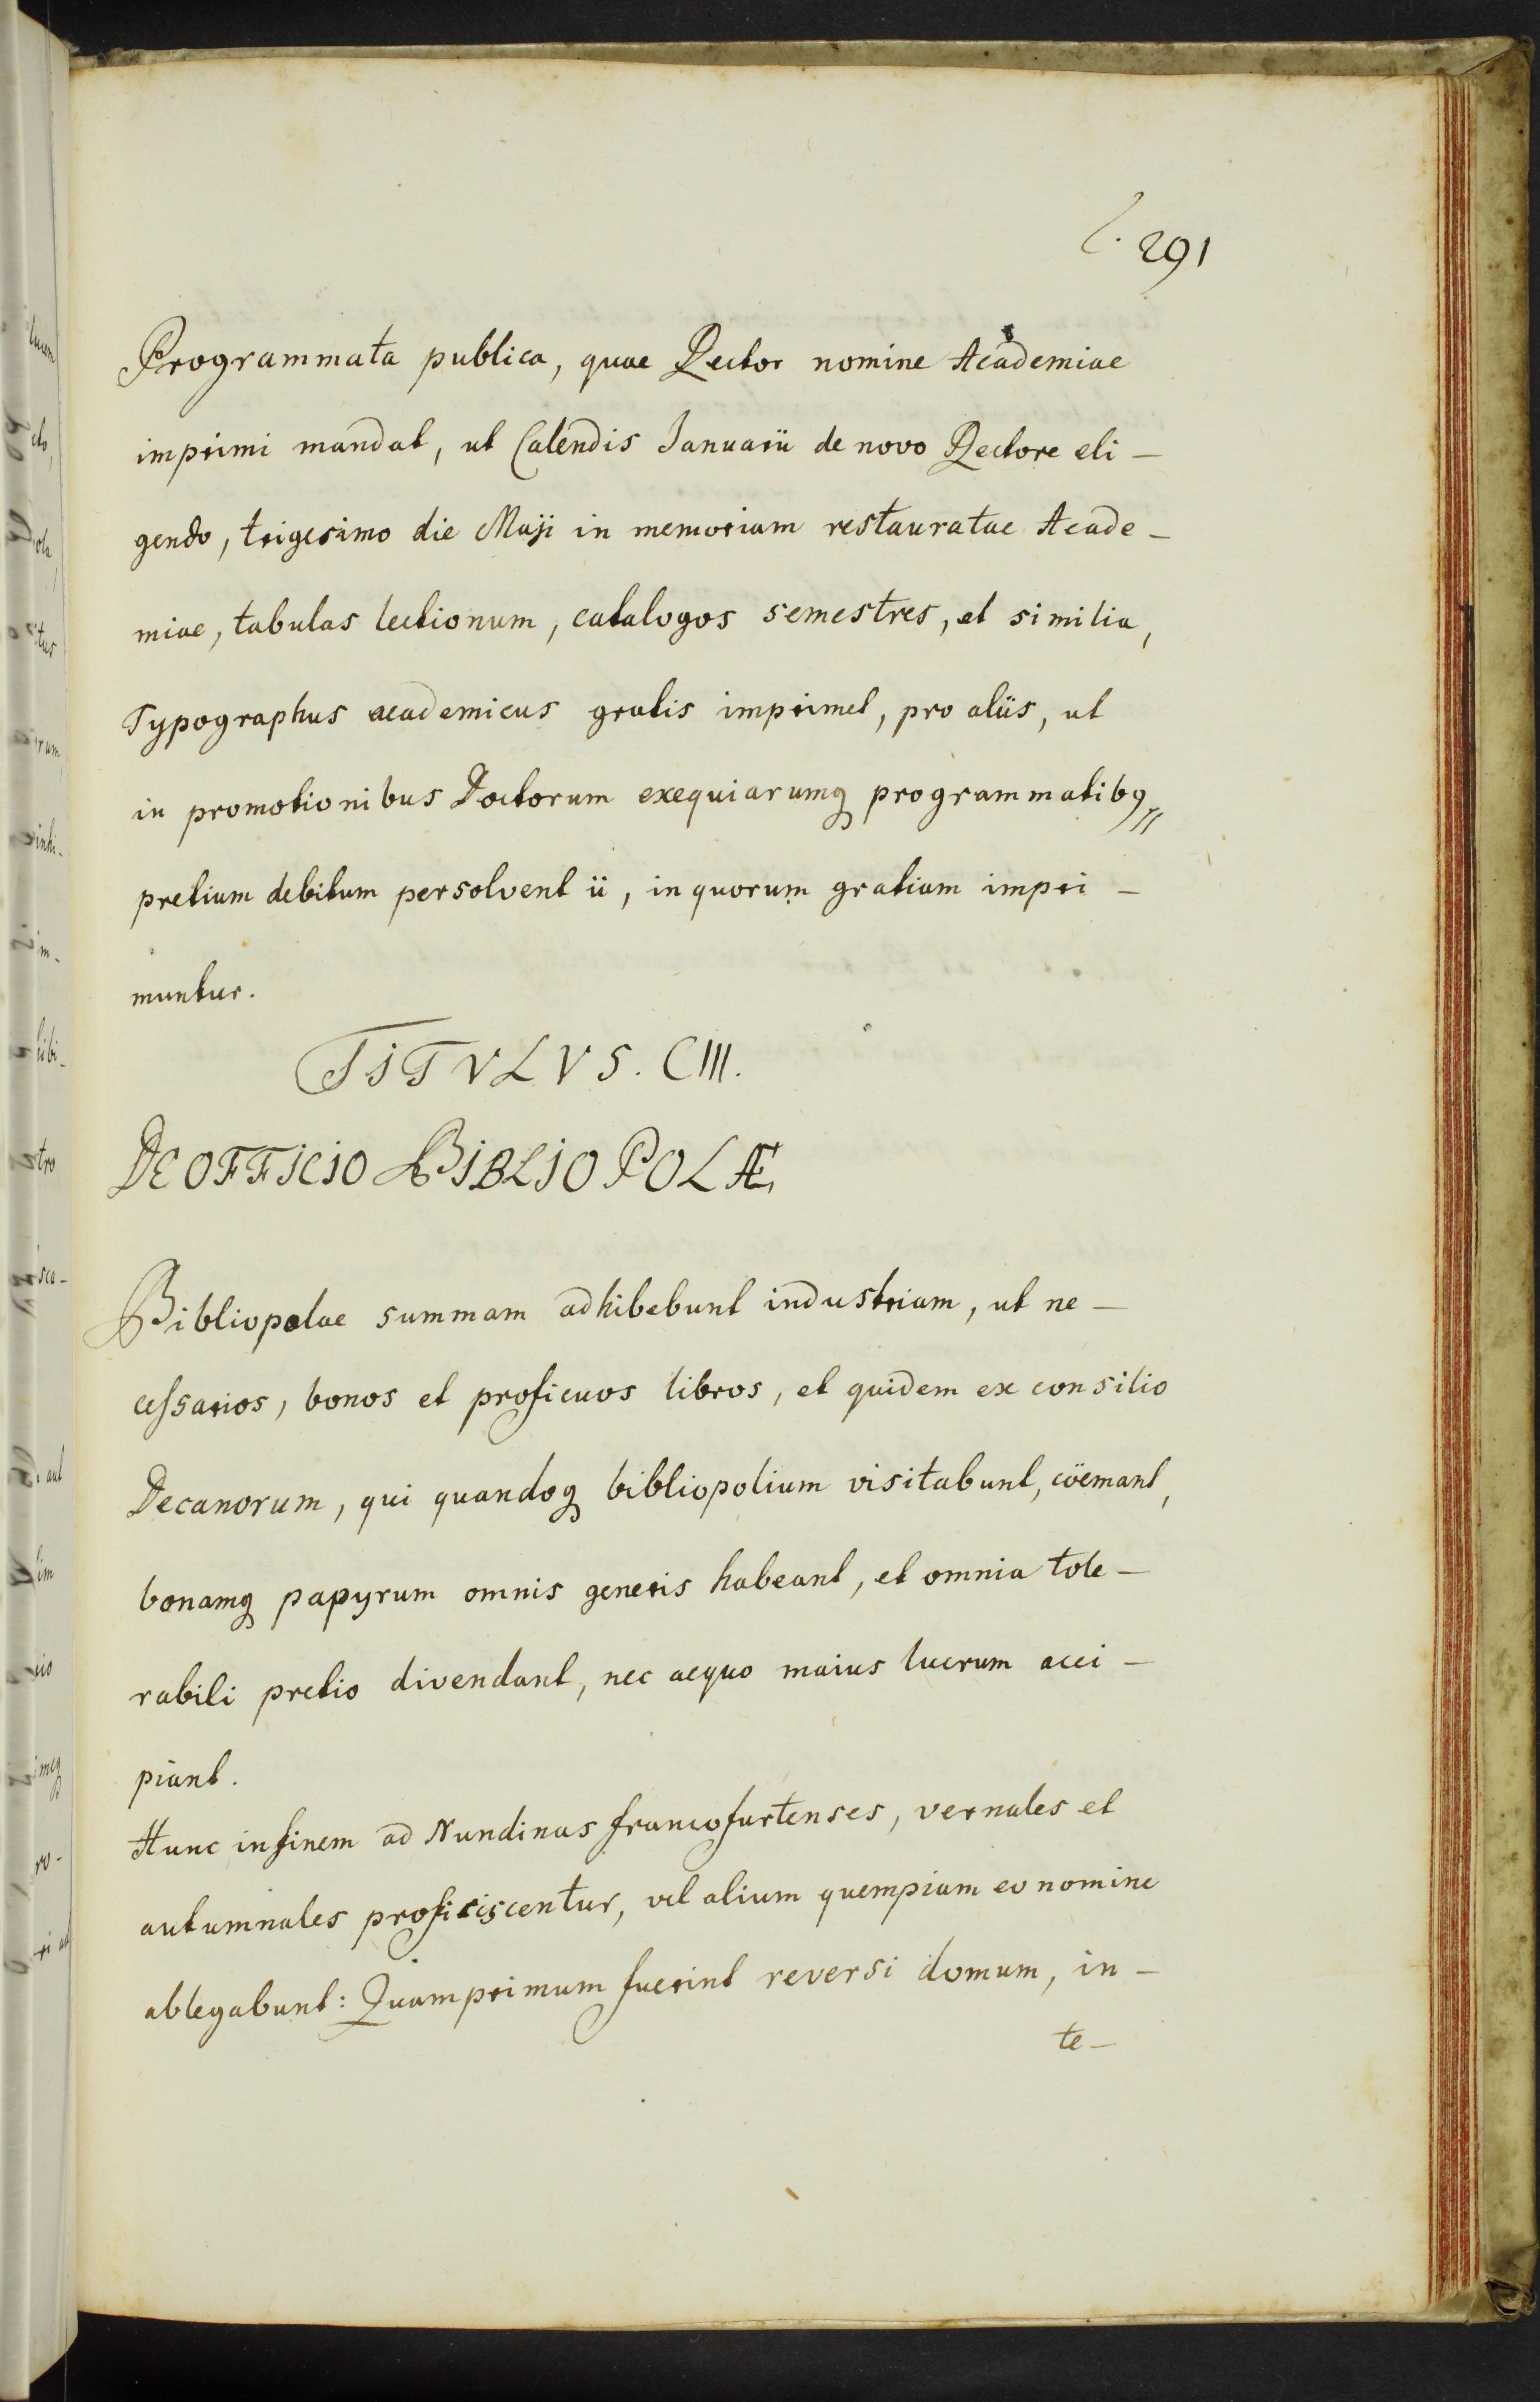 291
Programmata publica, quae Rector nomine Academiae
imprimi mandat, ut Calendis Januarii de novo Rectore eli-
gendo, trigesimo die Maji in memoriam restauratae Acade-
miae, tabulas lectionum, catalogos semestres, et similia,
Typographus academicus gratis imprimet, pro aliis, ut
in promotionibus Doctorum exequiarumq; programmatib9,
pretium debitum persolvent ii, in quorum gratiam impri-
muntur.
TITVLVS. CIII.
DE OFFICIO BIBLIOPOLÆ,
Bibliopolae summam adhibebunt industriam, ut ne-
cessarios, bonos et proficuos libros, et quidem ex consilio
Decanorum, qui quandoq; bibliopolium visitabunt, cöemant,
bonamq; papyrum omnis generis habeant, et omnia tole-
rabili pretio divendant, nec aequo maius lucrum acci-
piant.
Hunc in finem ad Nundinas francofurtenses, vernales et
autumnales proficiscentur, vel alium quempiam eo nomine
ablegabunt: Quamprimum fuerint reversi domum, in-
te-